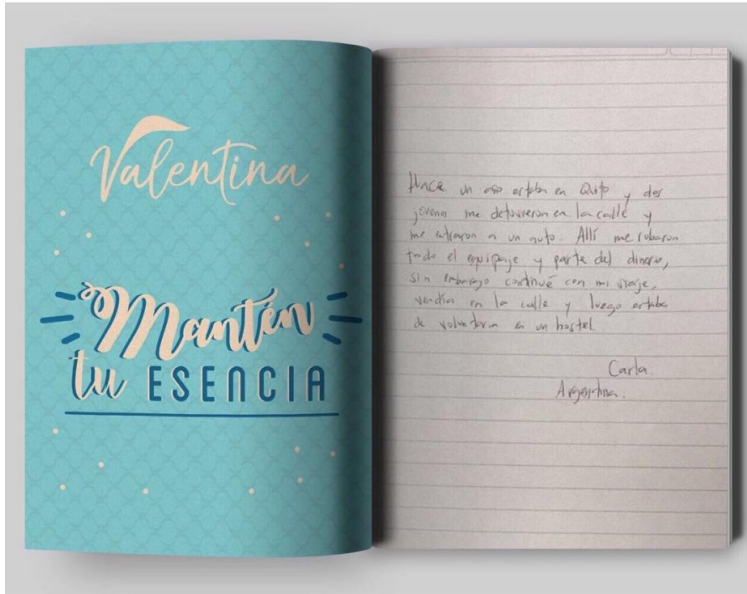 Valentina
Mantén
tu ESENCIA
Hace un año estaba en Quito y dos
jóvenes me detuvieron en la calle y
me entraron a un auto. Allí me robaron
todo el equipaje y parte del dinero,
sin embargo continué con mi viaje,
vendía en la calle y luego estaba
de voluntaria en un hostel
Carla.
Argentina.